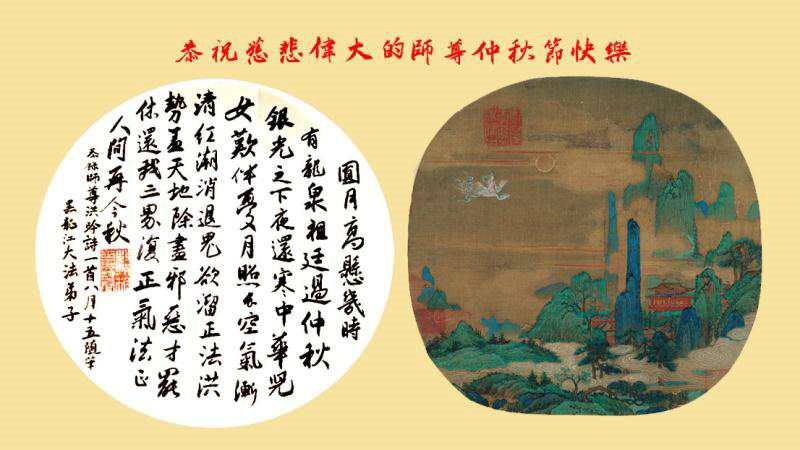 恭祝慈悲偉大的師尊仲秋節快樂
圓月高懸幾時
有龍泉祖廷過仲秋
銀光之下夜還寒中華兒
女歎伴月照长空氣漸
清红潮消退鬼欲溜正法洪
勢蓋天地除盡邪惡才罷
休還我三界復正氣法正
人間再今秋
恭錄師尊洪吟詩一首八月十五隨筆
黑龍江大法弟子